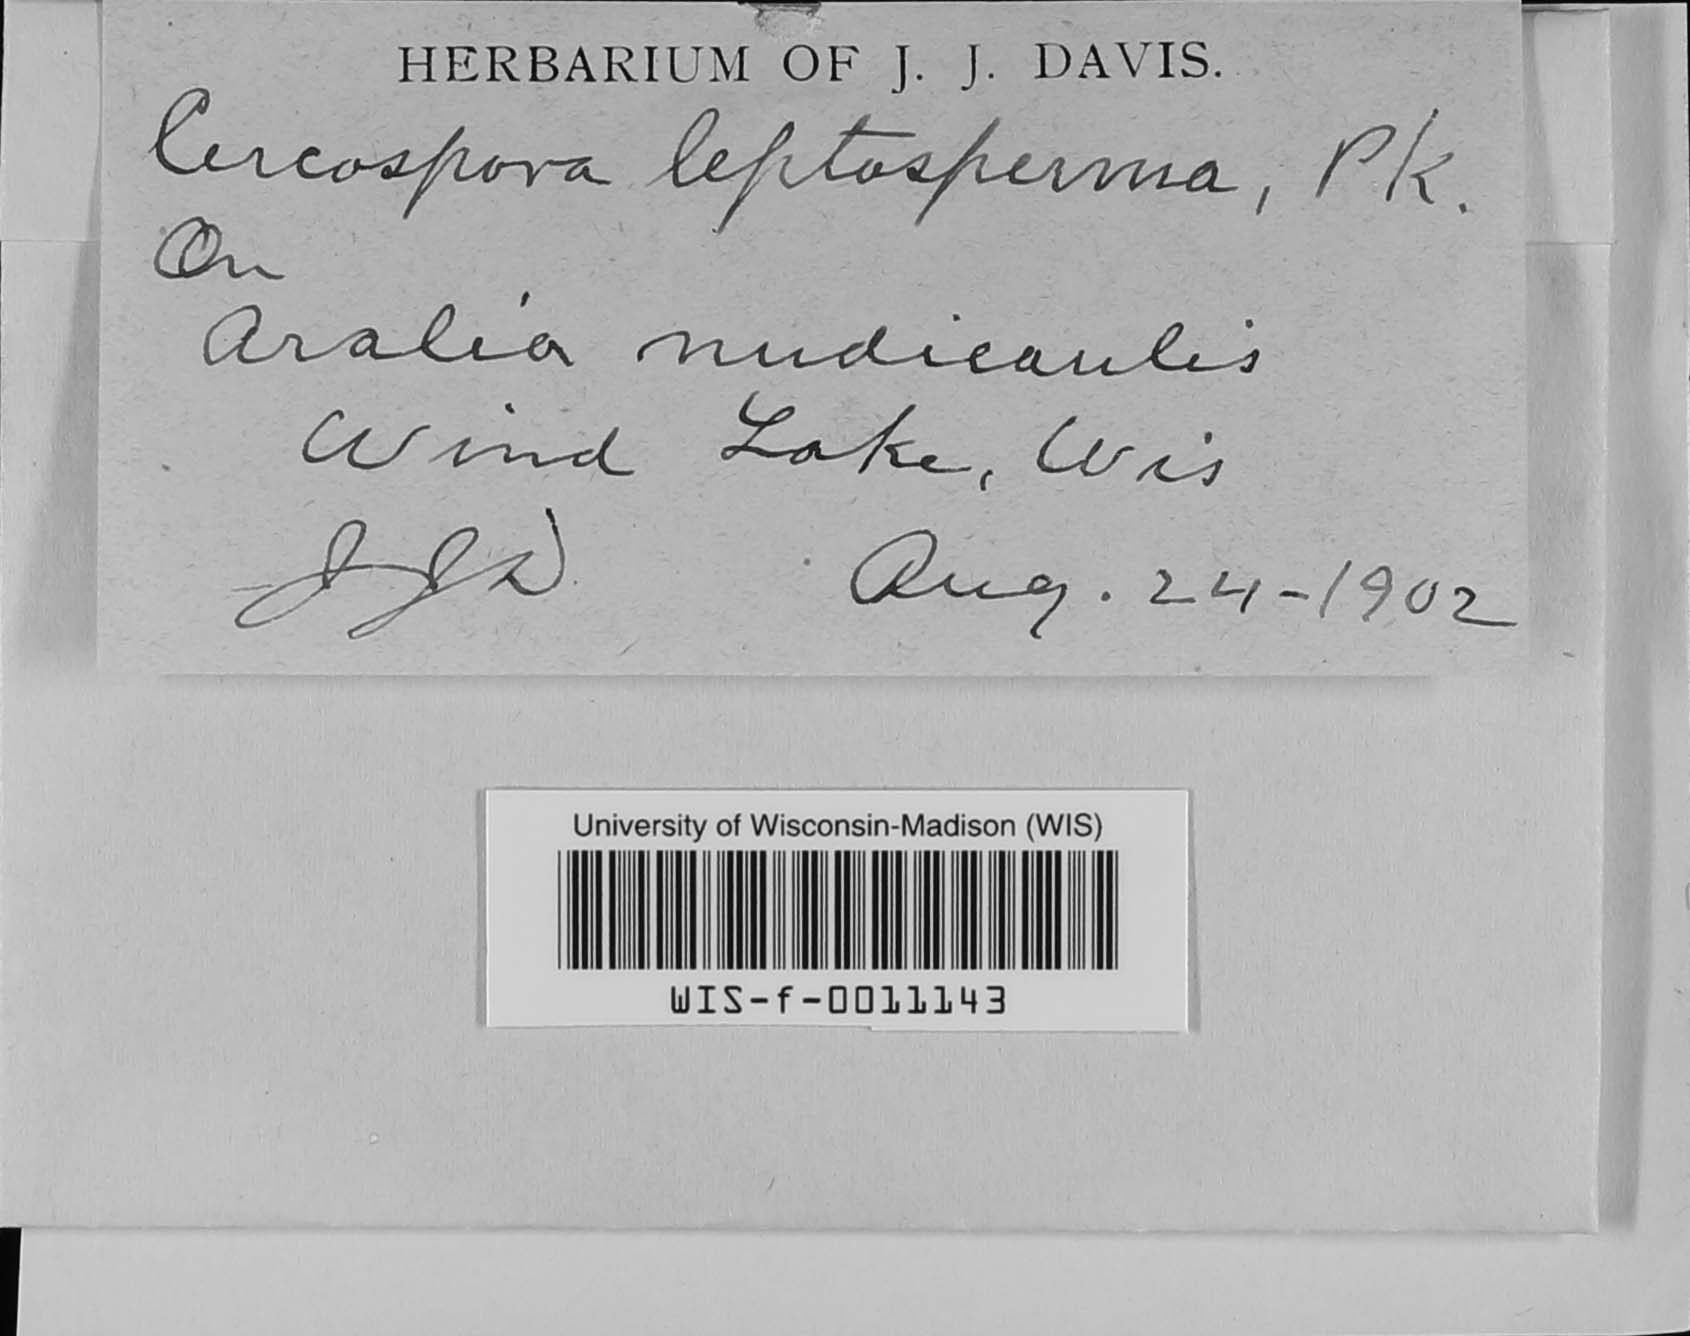 HERBARIUM OF J. J. DAVIS.
Cercospora leptosperma, Pk.
On
Aralia nudicaulis
Wind Lake, Wis
JJD Aug. 24-1902
University of Wisconsin-Madison (WIS)
WIS-f-0011143